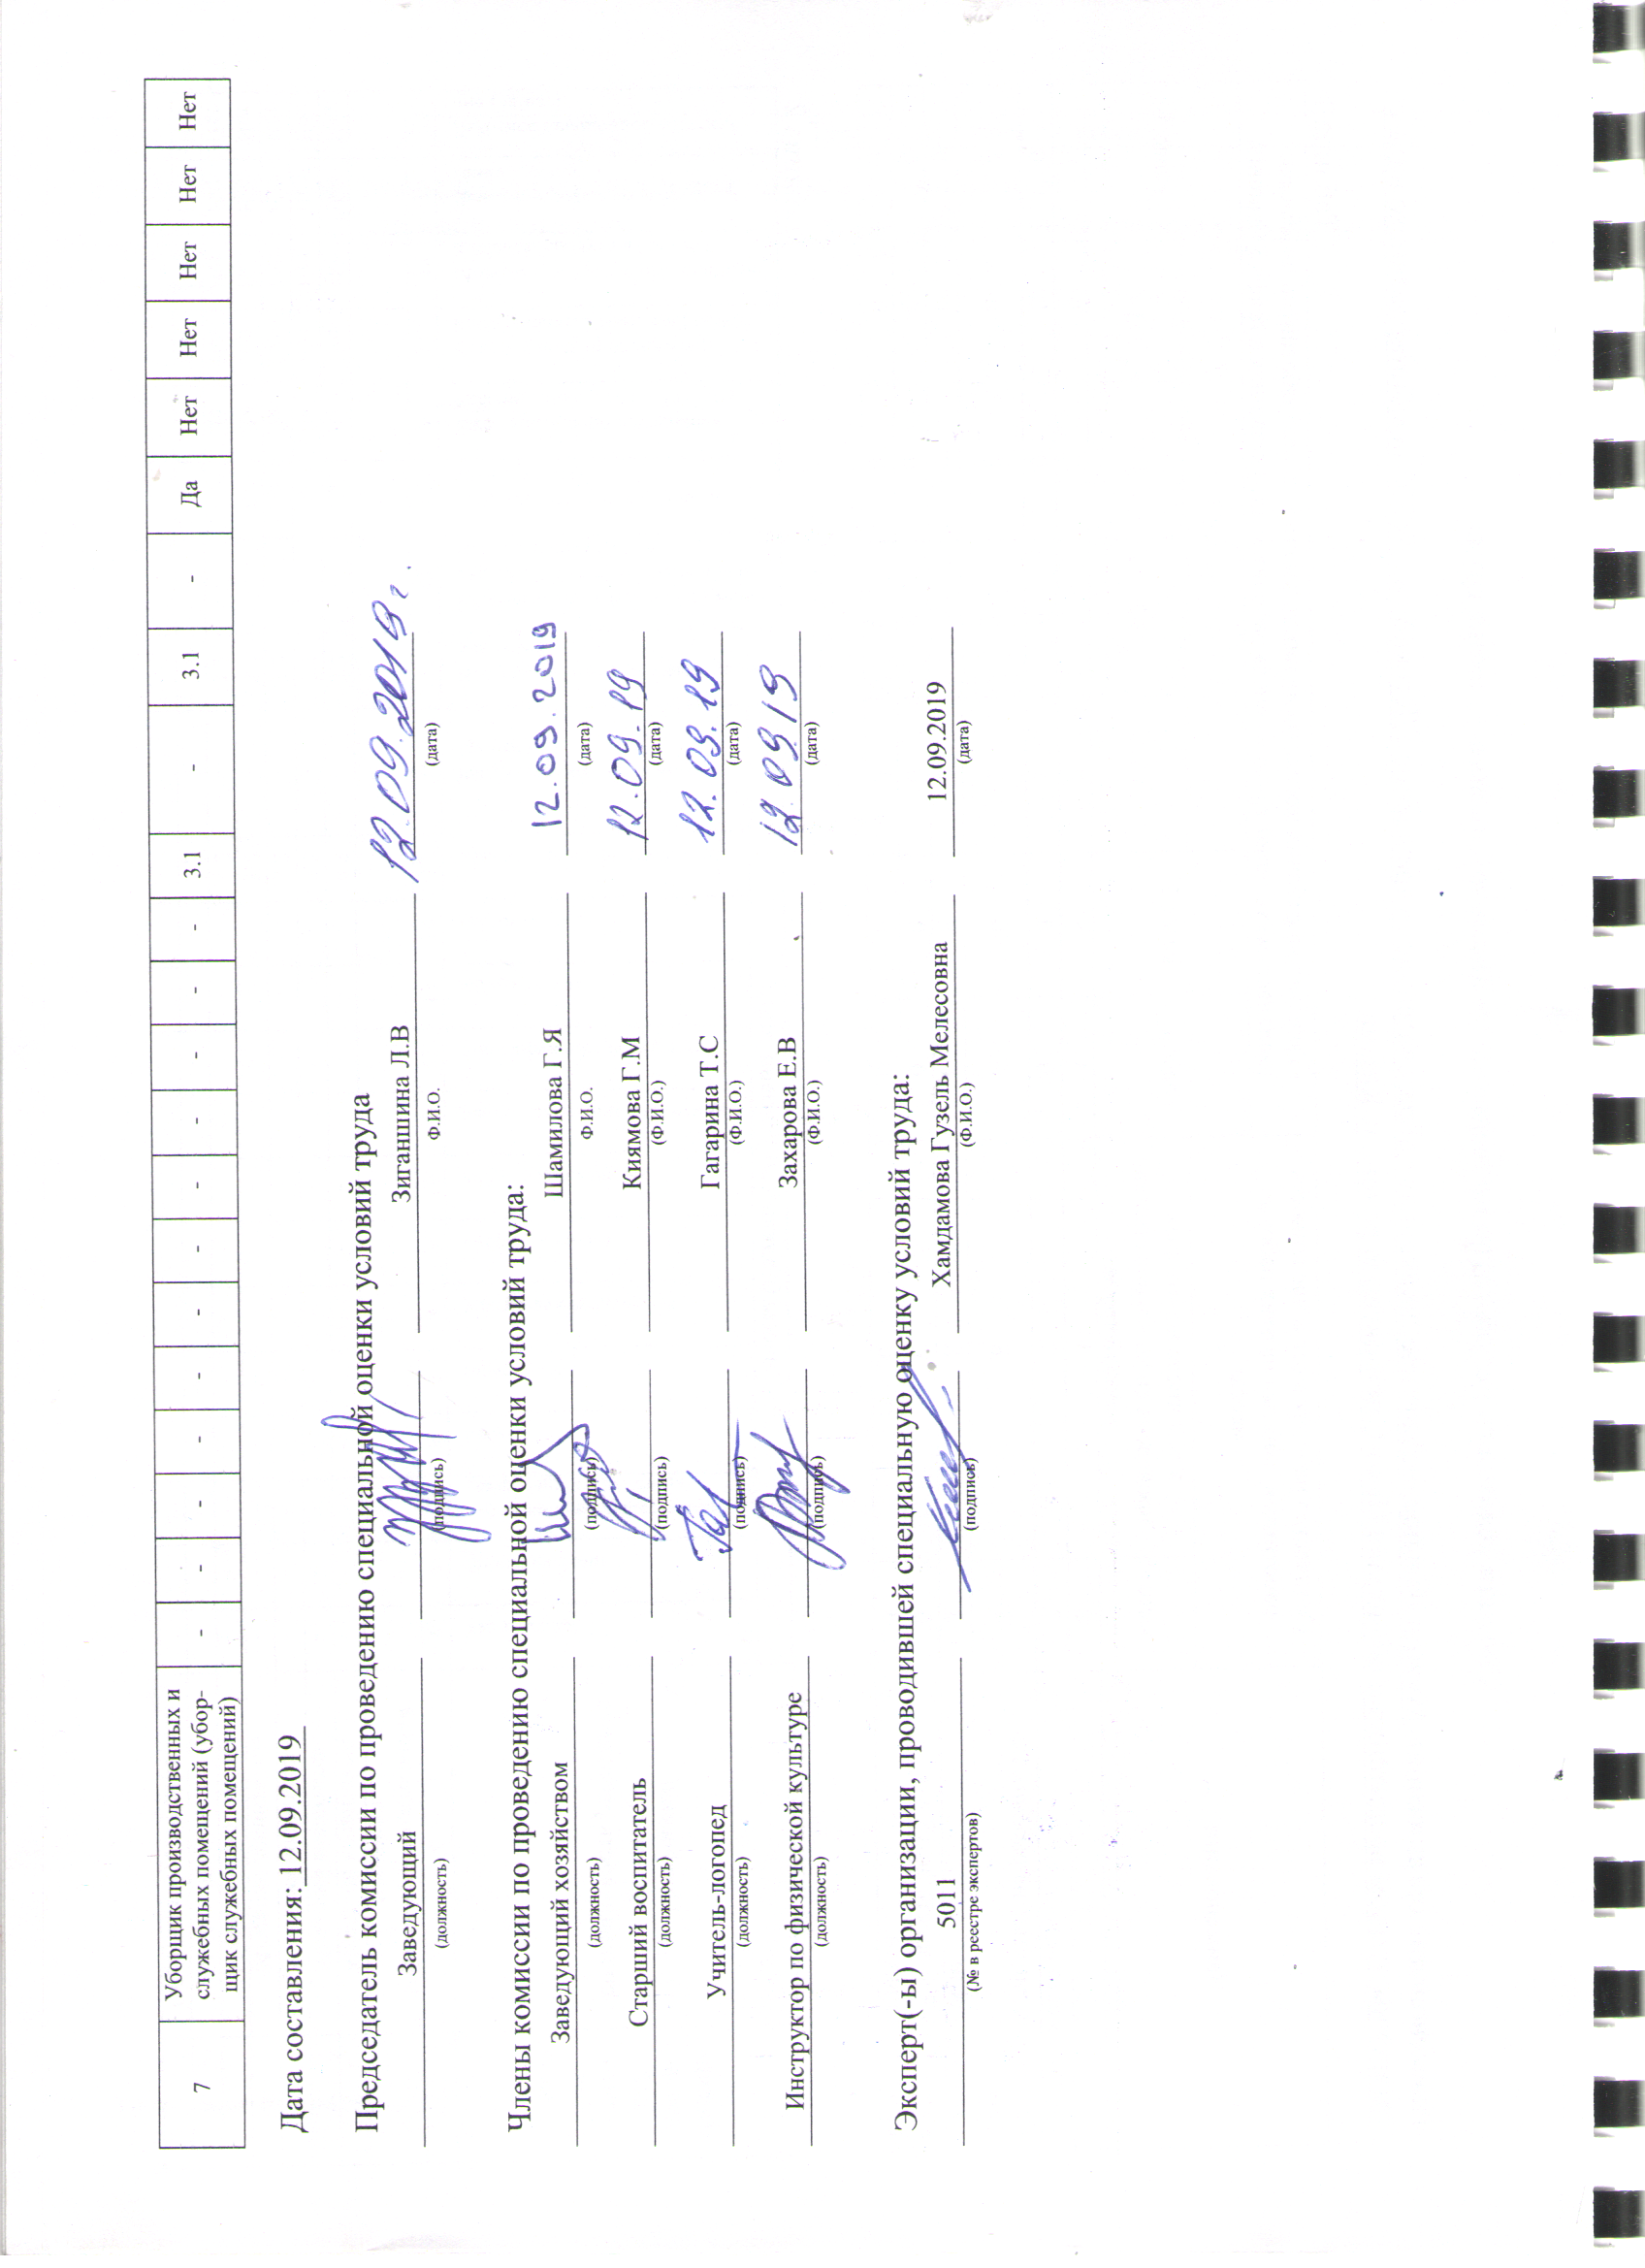 7 Уборщик производственных и
служебных помещений (убор-
щик служебных помещений) - - - - - - - - - - - - 3.1 - 3.1 - Да Нет Нет Нет Нет Нет
Дата составления: 12.09.2019
Председатель комиссии по проведению специальной оценки условий труда
Заведующий Зиганшина Л.В 12.09.2019г.
(должность) (подпись) Ф.И.О. (дата)
Члены комиссии по проведению специальной оценки условий труда:
Заведующий хозяйством Шамилова Г.Я 12.09.2019
(должность) (подпись) Ф.И.О. (дата)
Старший воспитатель Киямова Г.М 12.09.19
(должность) (подпись) (Ф.И.О.) (дата)
Учитель-логопед Гагарина Т.С 12.09.19
(должность) (подпись) (Ф.И.О.) (дата)
Инструктор по физической культуре Захарова Е.В 12 09 19
(должность) (подпись) (Ф.И.О.) (дата)
Эксперт(-ы) организации, проводившей специальную оценку условий труда:
5011 Хамдамова Гузель Мелесовна 12.09.2019
(№ в реестре экспертов) (подпись) (Ф.И.О.) (дата)